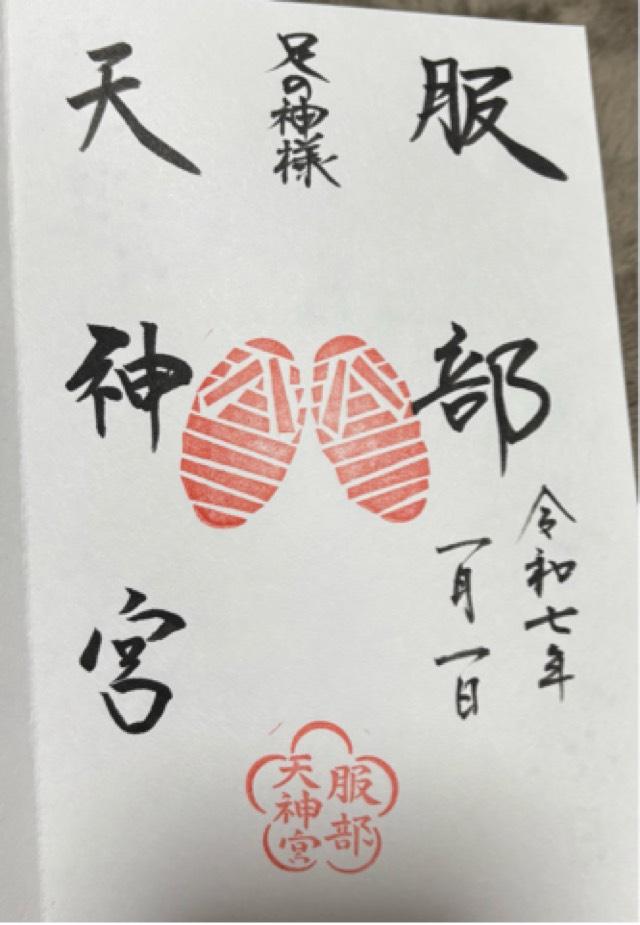 服部
足の神様
天神宮
令和七年
一月一日
服部
天神宮